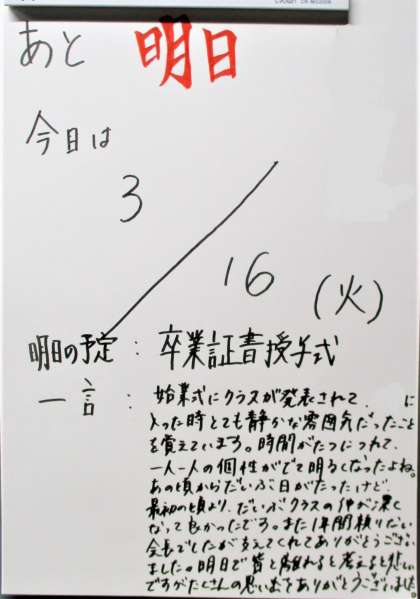 あと 明日
今日は
3/16(火)
明日の予定：卒業証書授与式
一言：始業式にクラスが発表されて、 に
入った時とても静かな雰囲気だったこと
を覚えています。時間がたつにつれて、
一人一人の個性がでて明るくなったよね。
あの頃からだいぶ日がたったけど、
最初の頃より、だいぶクラスの仲が深く
なって良かったです。また1年間頼りない
会長でしたが支えてくれてありがとうござい
ました。明日で皆と離れると考えると悲しい
ですがたくさんの思い出をありがとうございました